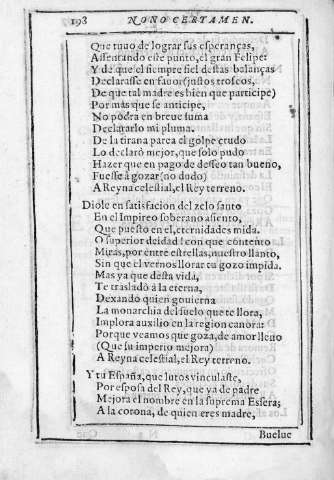 198 NONO CERTAMEN.
Que tuuo de lograr sus esperanças,
Assentando este punto, el gran Felipe:
Y de que el siempre fiel destas balanças
Declarasse en fauor (justos trofeos,
De que tal madre es bien que participe)
Por mas que se anticipe,
No podra en breue suma
Declararlo mi pluma.
De la tirana parca el golpe crudo
Lo declarò mejor, que solo pudo
Hazer que en pago de desseo tan bueno,
Fuesse à gozar (no dudo)
A Reyna celestial, el Rey terreno.
Diole en satisfacion del zelo santo
En el Impireo soberano asiento,
Que puesto en el, eternidades mida.
O superior deidad! con que contento
Miras, por entre estrellas, nuestro llanto,
Sin que el vernos llorar tu gozo impida.
Mas ya que desta vida,
Te trasladò à la eterna,
Dexando quien gouierna
La monarchia del suelo que te llora,
Implora auxilio en la region canora:
Porque veamos que goza, de amor lleno
(Que su imperio mejora)
A Reyna celestial, el Rey terreno.
Y tu España, que lutos vinculaste,
Por esposa del Rey, que ya de padre
Mejora el nombre en la suprema Esfera;
A la corona, de quien eres madre,
Buelue